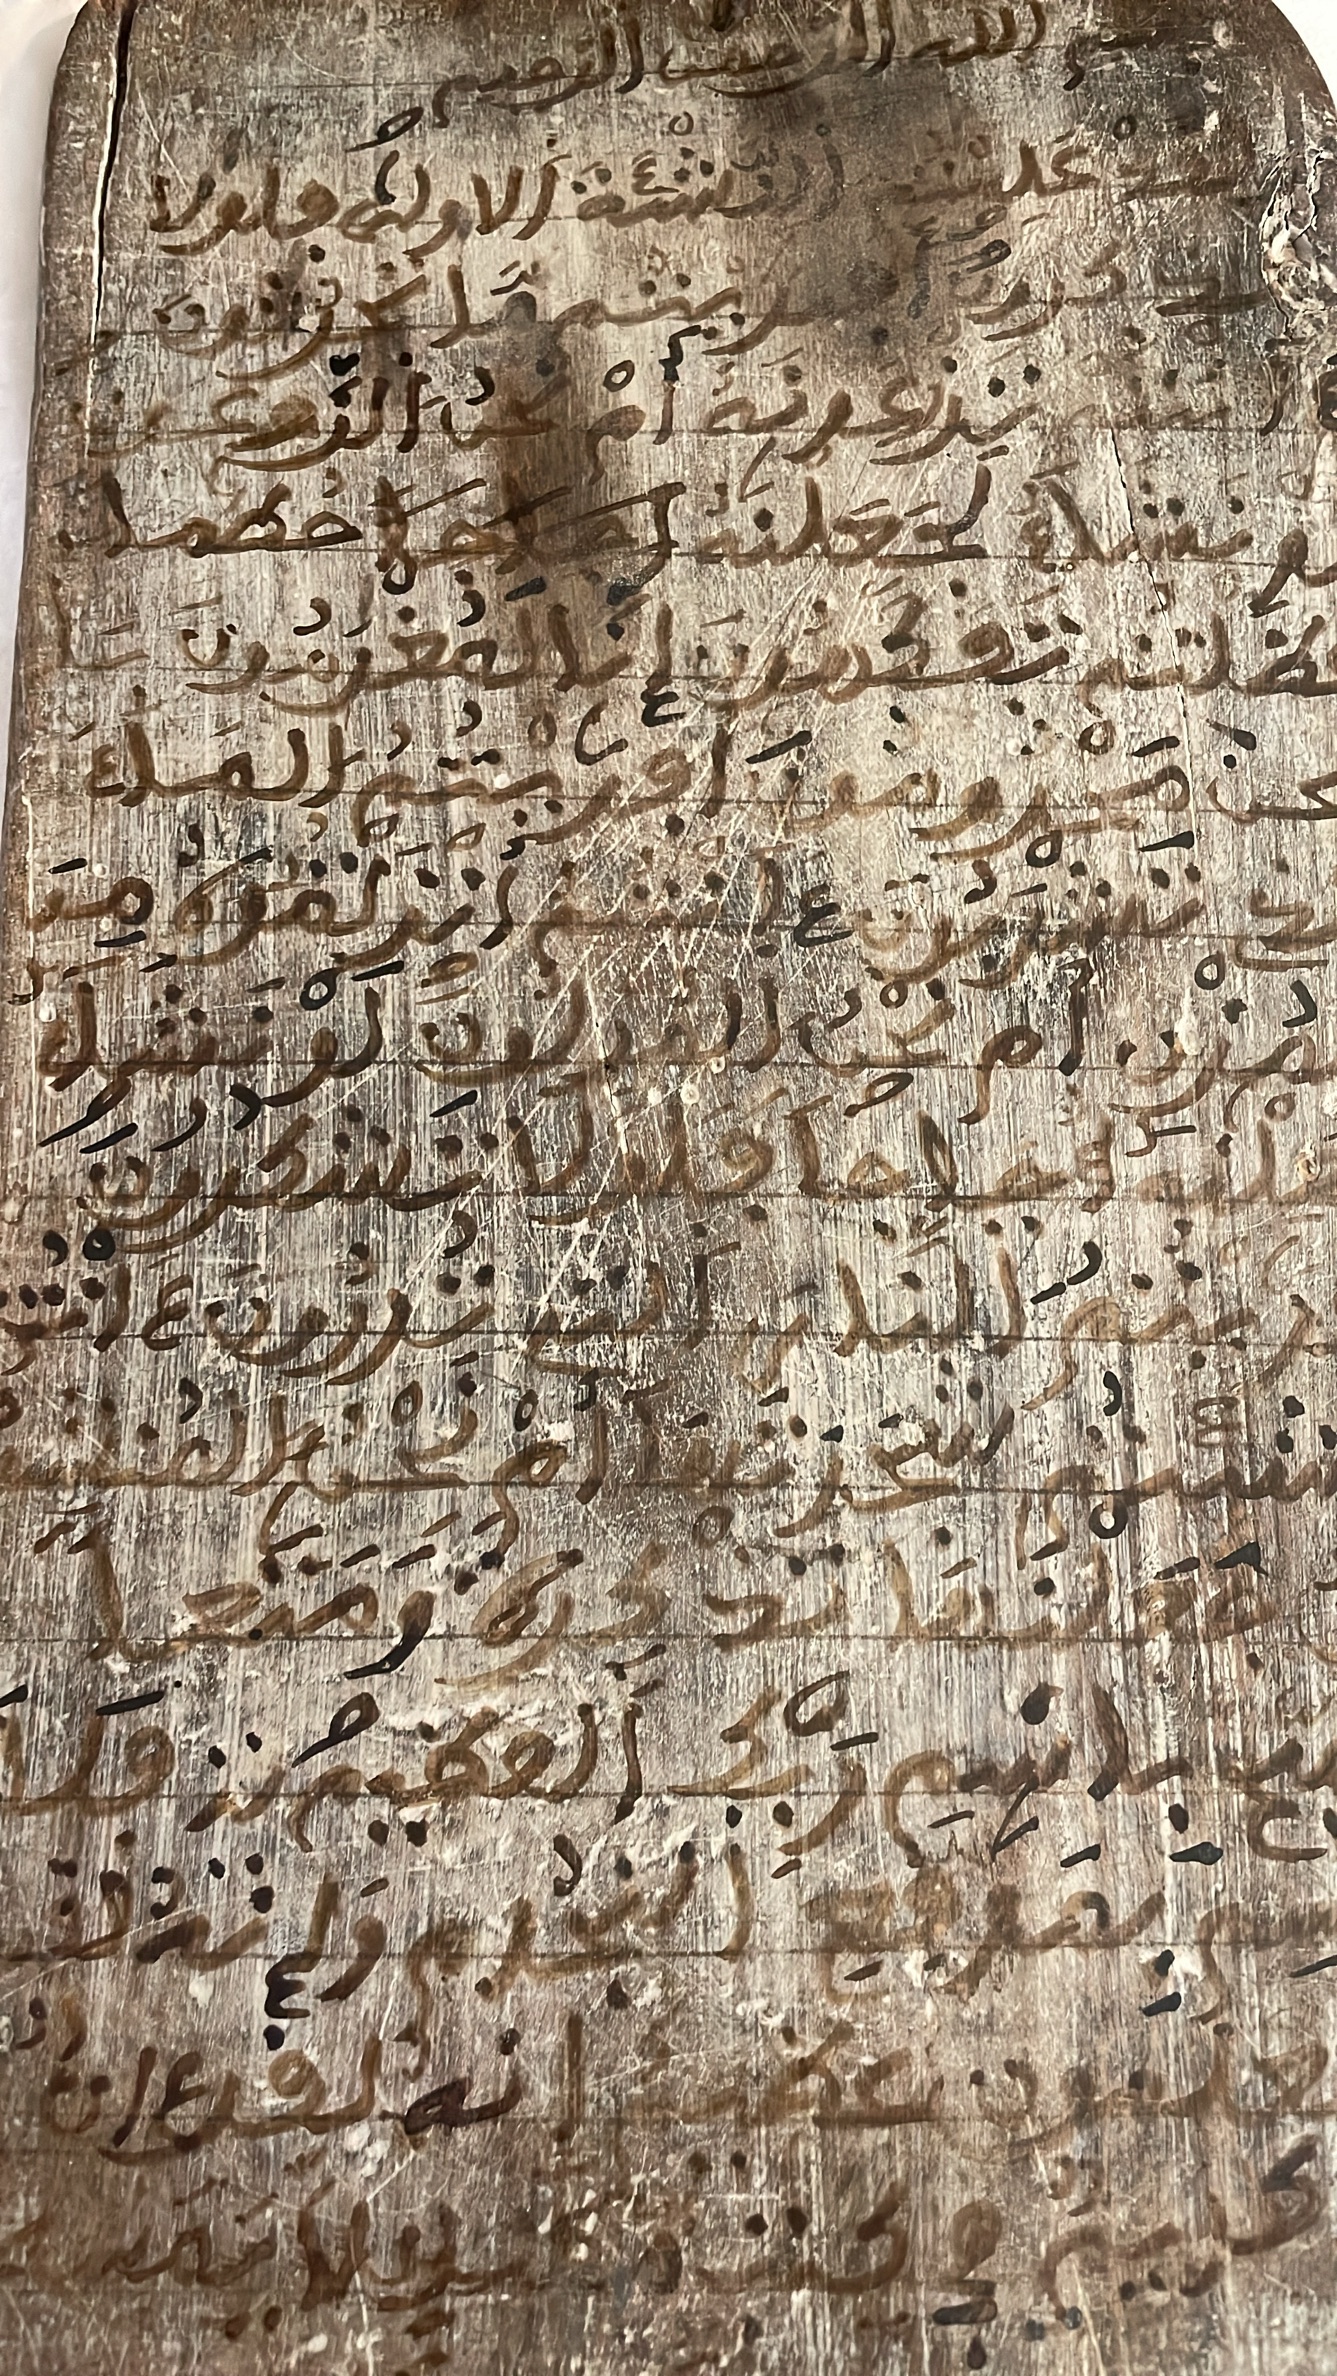 الله الرحمن الرحيم
علمتم النشأة الاولى فلولا
تذكرون افرءيتم ما تحرثون
ءانتم تزرعونه أم نحن الزرعون
لو نشاء لجعلنه حطما
فظلتم تفكهون إنا لمغرمون بل
نحن محرومون افرءيتم الماء
الذي تشربون ءانتم انزلتموه من
المزن أم نحن المنزلون لو نشاء
جعلنه أجاجا فلولا تشكرون
افرءيتم النار التي تورون ءانتم
أنشأتم شجرتها أم نحن المنشئون
نحن جعلنها تذكرة ومتعا
فسبح باسم ربك العظيم فلا
أقسم بموقع النجوم وإنه لقسم لو
تعلمون عظيم إنه لقرءان
كريم في كتب مكنون لا يمسه